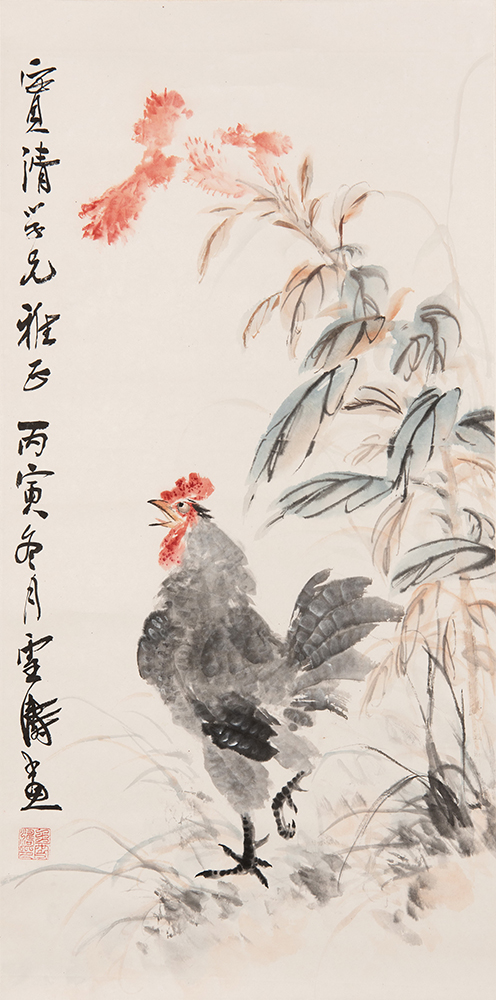 寶清學兄雅正丙寅冬月雪濤畫